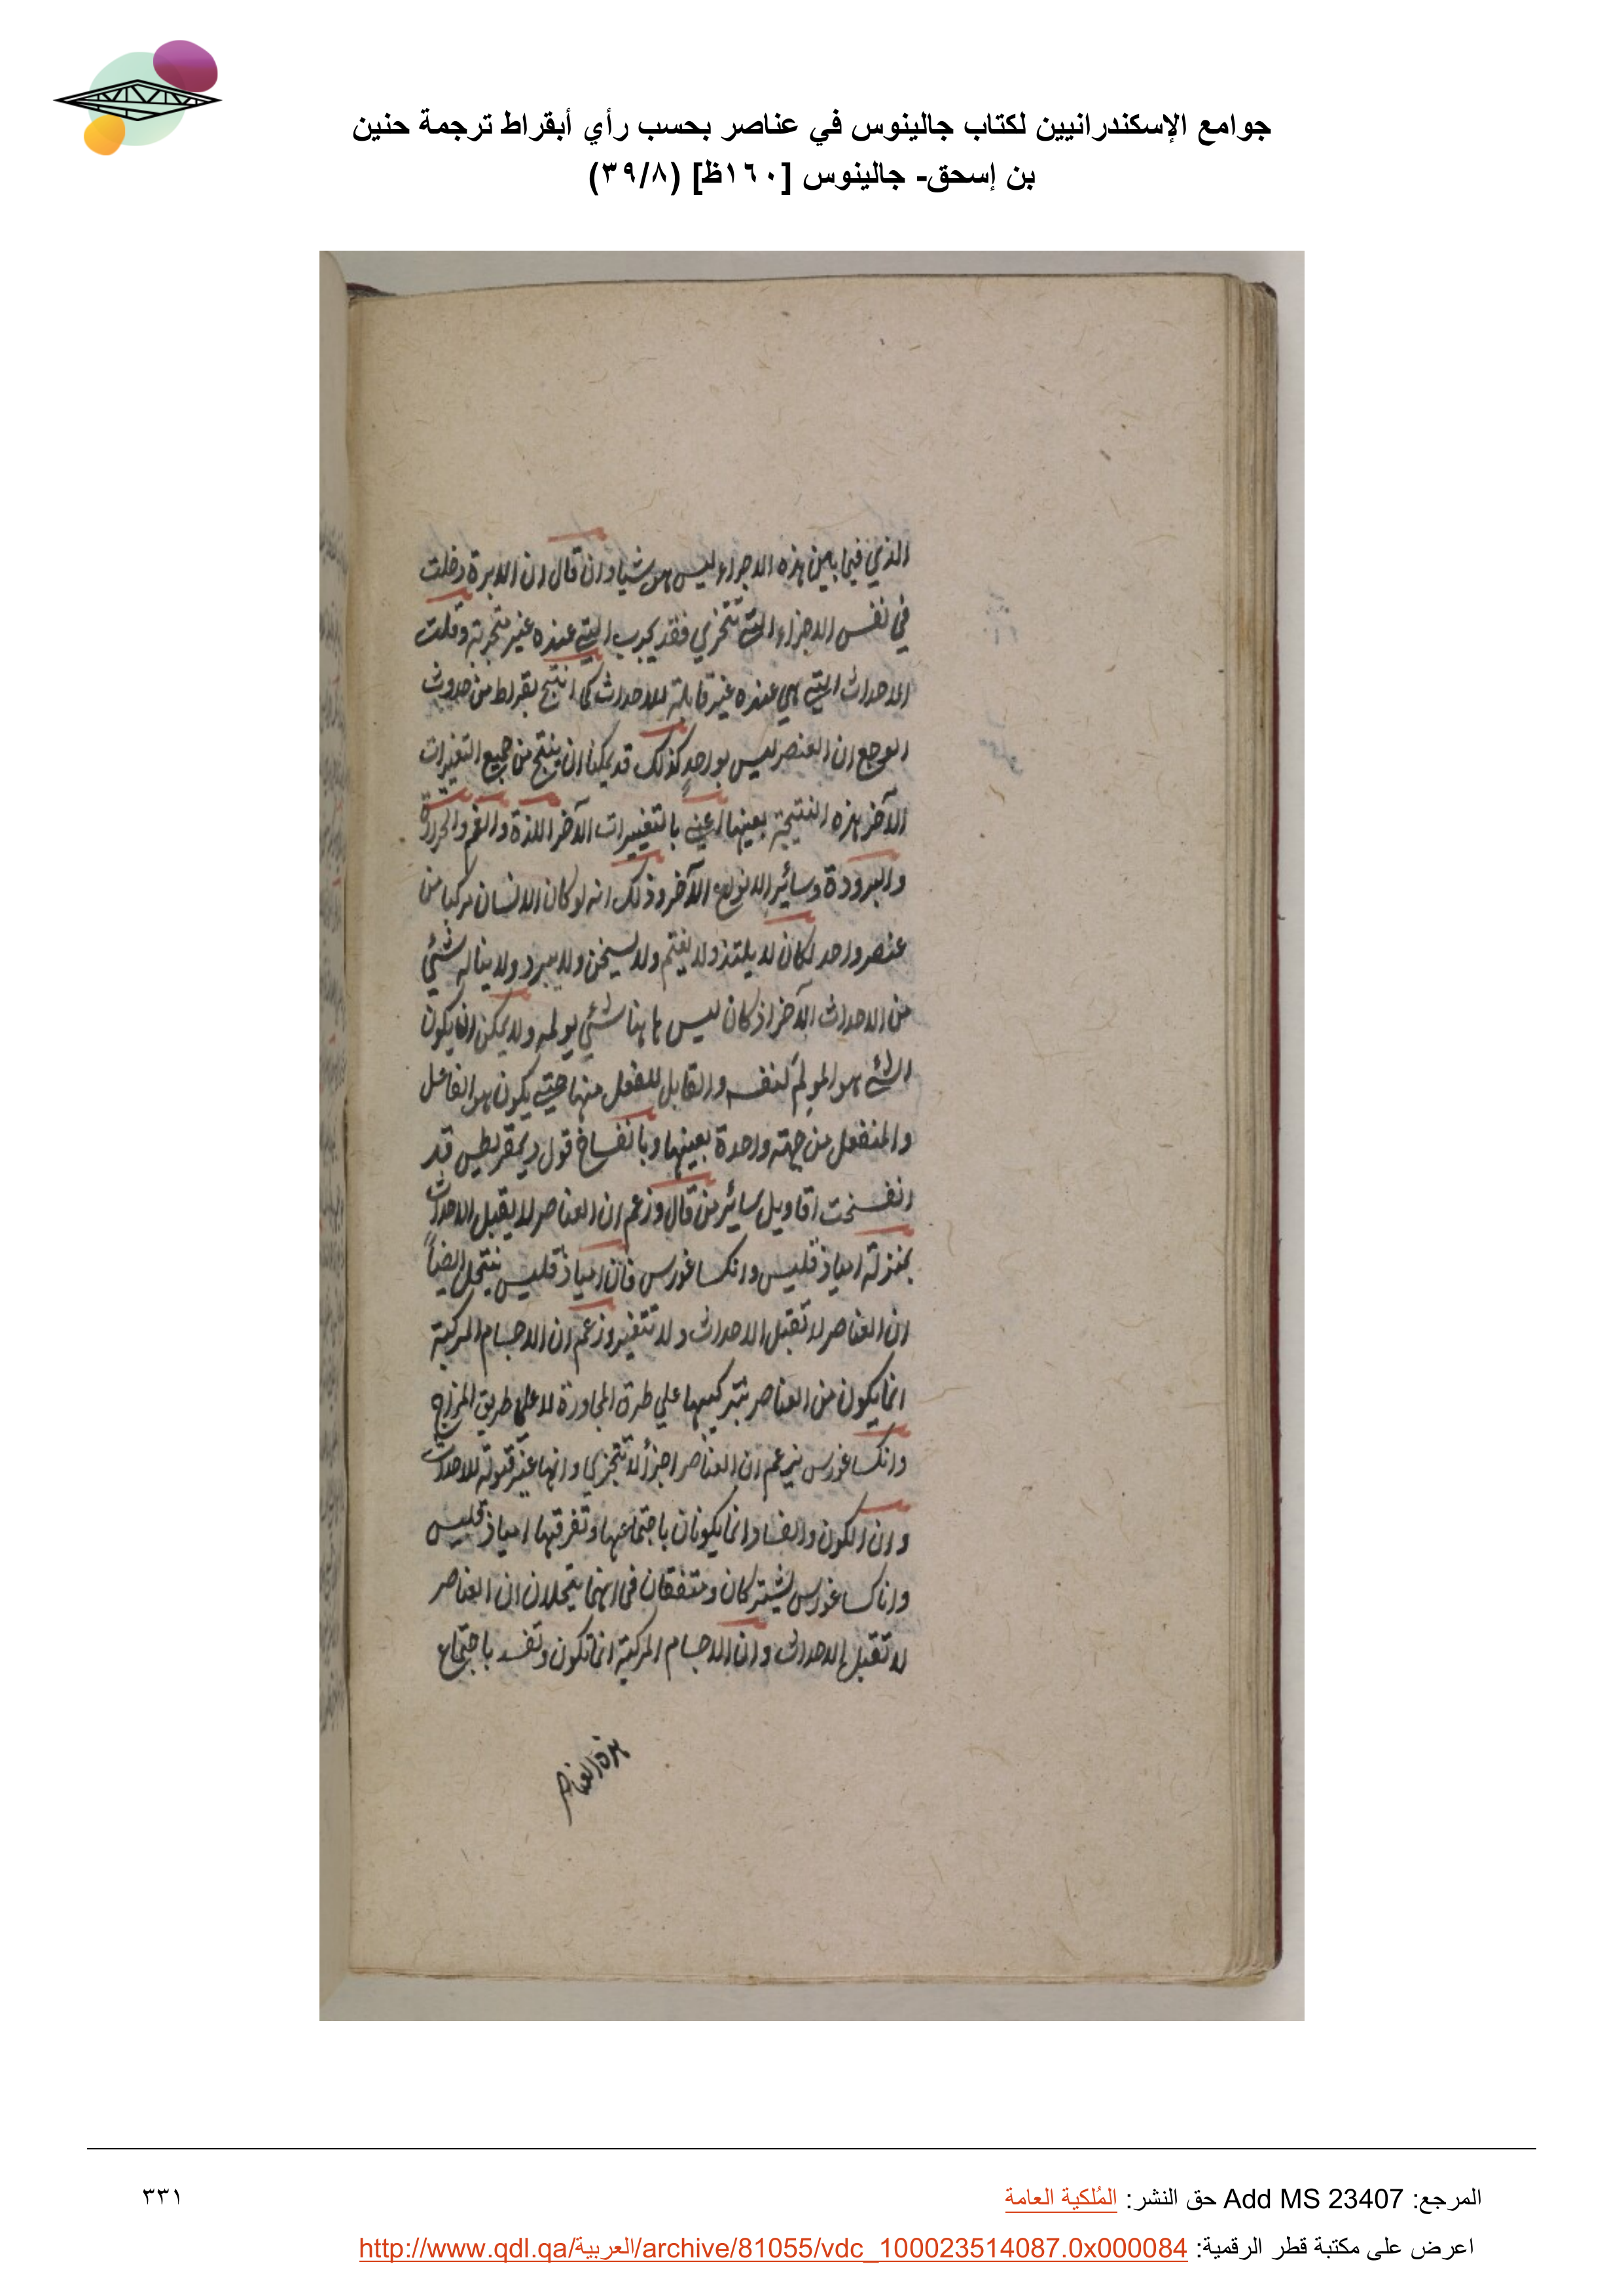 جوامع الإسكندرانيين لكتاب جالينوس في عناصر بحسب رأي أبقراط ترجمة حنين
بن إسحق- جالينوس [١٦٠ظ] (٣٩/٨)
الذي فيما بين هذه الاجزاء ليس هو شيا وان قال ان الابرة دخلت
في نفس الاجزاء التي تتجزي فقد يجب التي عنده غير متجزية وقلت
الاحداث التي هي عنده غير قابلة للاحداث كما انتج بقراط من حدوث
الوجع ان العنصر ليس بواحد كذلك قد يمكنا ان ينتج من جميع التغيرات
الآخر هذه النتيجة بعينها اعني بالتغييرات الآخر اللذة والغم والحرارة
والبرودة وسائر الانواع الآخر وذلك انه لو كان الانسان مركبا من
عنصر واحد لكان لا يلتذ ولا يغتم ولا يسخن ولا يبرد ولا يناله شئي
من الاحداث الآخر اذ كان ليس هاهنا شئي يولمه ولا يمكن ان يكون
الشئ هو المولم لنفسه والقابل للفعل منها حتي يكون هو الفاعل
والمنفعل من جهته واحدة بعينها وبانفساخ قول ديمقريطس قد
انفسخت اقاويل سائر من قال وزعم ان العناصر لا يقبل الاحداث
بمنزلة انباذقليس وانكساغورس فان انباذقليس ينتحل ايضاً
ان العناصر لا تقبل الاحداث ولا تتغير وزعم ان الاجسام المركبة
انما يكون من العناصر بتركيبها علي طرق المجاورة لا علي طريق المزاج
وانكساغورس يزعم ان العناصر اجزأ لا تتجزي وانها غير قبولة للاحداث
وان الكون والفساد انما يكونان باجتماعها وتفرقها انباذقليس
واناكساغورس يشتركان ومتفقان في انهما ينتحلان ان العناصر
لا تقبل الاحداث وان الاجسام المركبة انما تكون وتفسد باجتماع
هذه العناصر
المرجع: Add MS 23407 حق النشر: المُلكية العامة
٣٣١
اعرض على مكتبة قطر الرقمية: http://www.qdl.qa/العربية/archive/81055/vdc_100023514087.0x000084